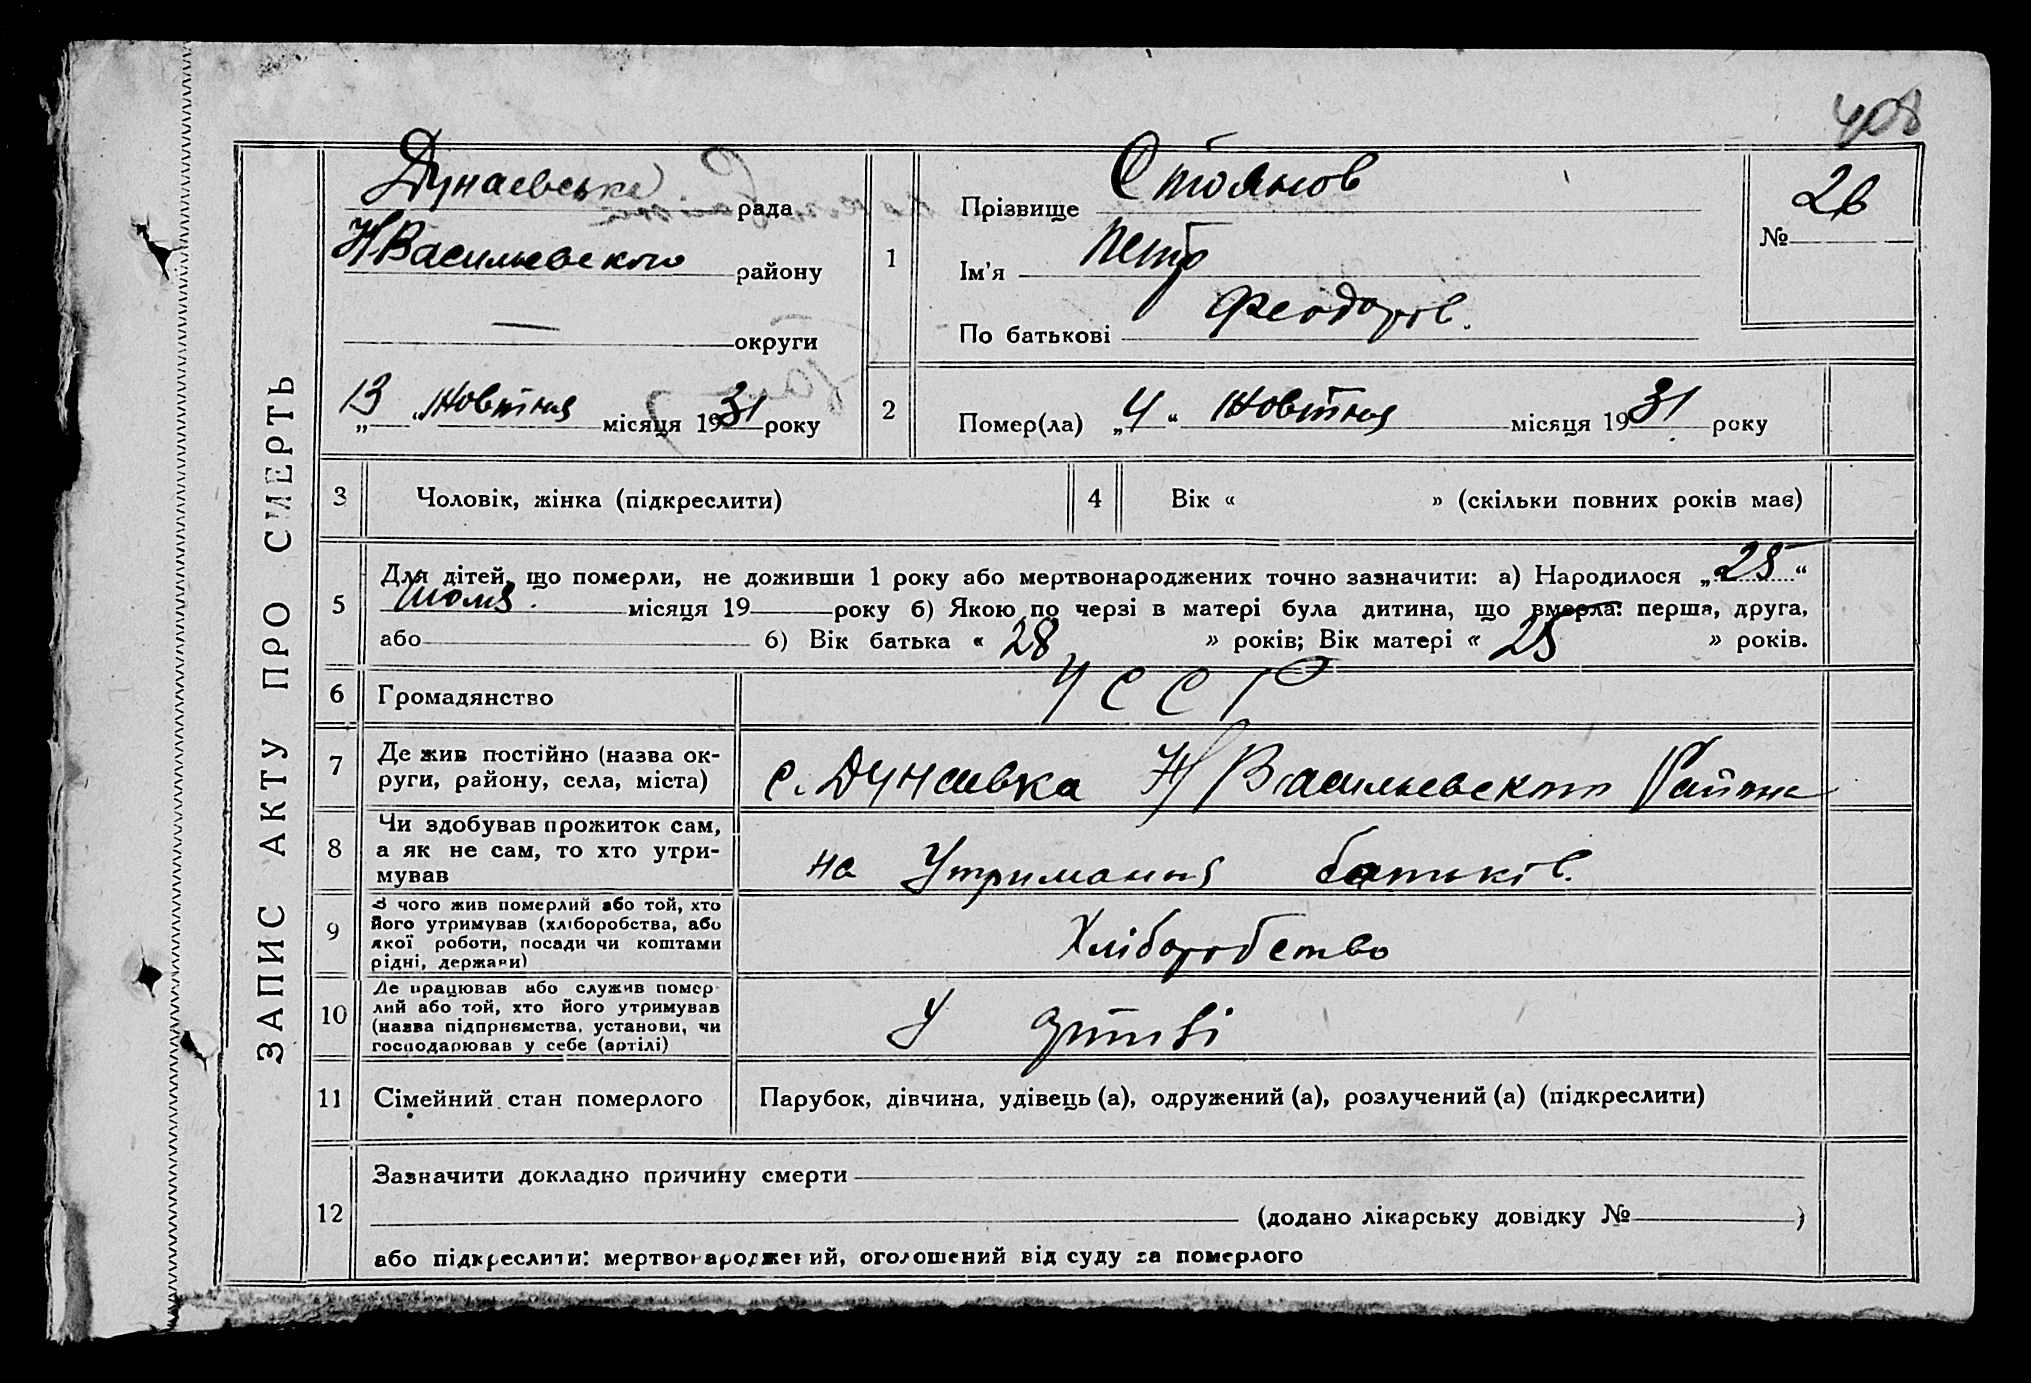 408
ЗАПИС АКТУ ПРО СМЕРТЬ
Дунаевська рада
Н Васильевского району
— округи
„13“ жовтня місяця 1931 року
1
Прізвище Стоянов
Ім'я Петр
По батькові Феодоров.
№ 26
2
Помер(ла) „4“ жовтня місяця 1931 року
3 Чоловік, жінка (підкреслити)
4 Вік « » (скільки повних років має)
5
Для дітей, що померли, не доживши 1 року або мертвонароджених точно зазначити: а) Народилося „25“
місяця 19 року б) Якою по черзі в матері була дитина, що вмерла: перша, друга,
або б) Вік батька « 28 » років; Вік матері « 25 » років.
6 Громадянство УССР
7 Де жив постійно (назва ок-
руги, району, села, міста)
с. Дунаевка Н Васильевского Району
8 Чи здобував прожиток сам,
а як не сам, то хто утри-
мував
на Утримання батьків.
9 З чого жив померлий або той, хто
його утримував (хліборобства, або
якої роботи, посади чи коштами
рідні, держави)
Хліборобство
10 Де працював або служив помер-
лий або той, хто його утримував
(назва підприємства, установи, чи
господарював у себе (артілі)
У артілі
11 Сімейний стан померлого
Парубок, дівчина, удівець (а), одружений (а), розлучений (а) (підкреслити)
12
Зазначити докладно причину смерти
(додано лікарську довідку № )
або підкреслити: мертвонароджений, оголошений від суду за померлого